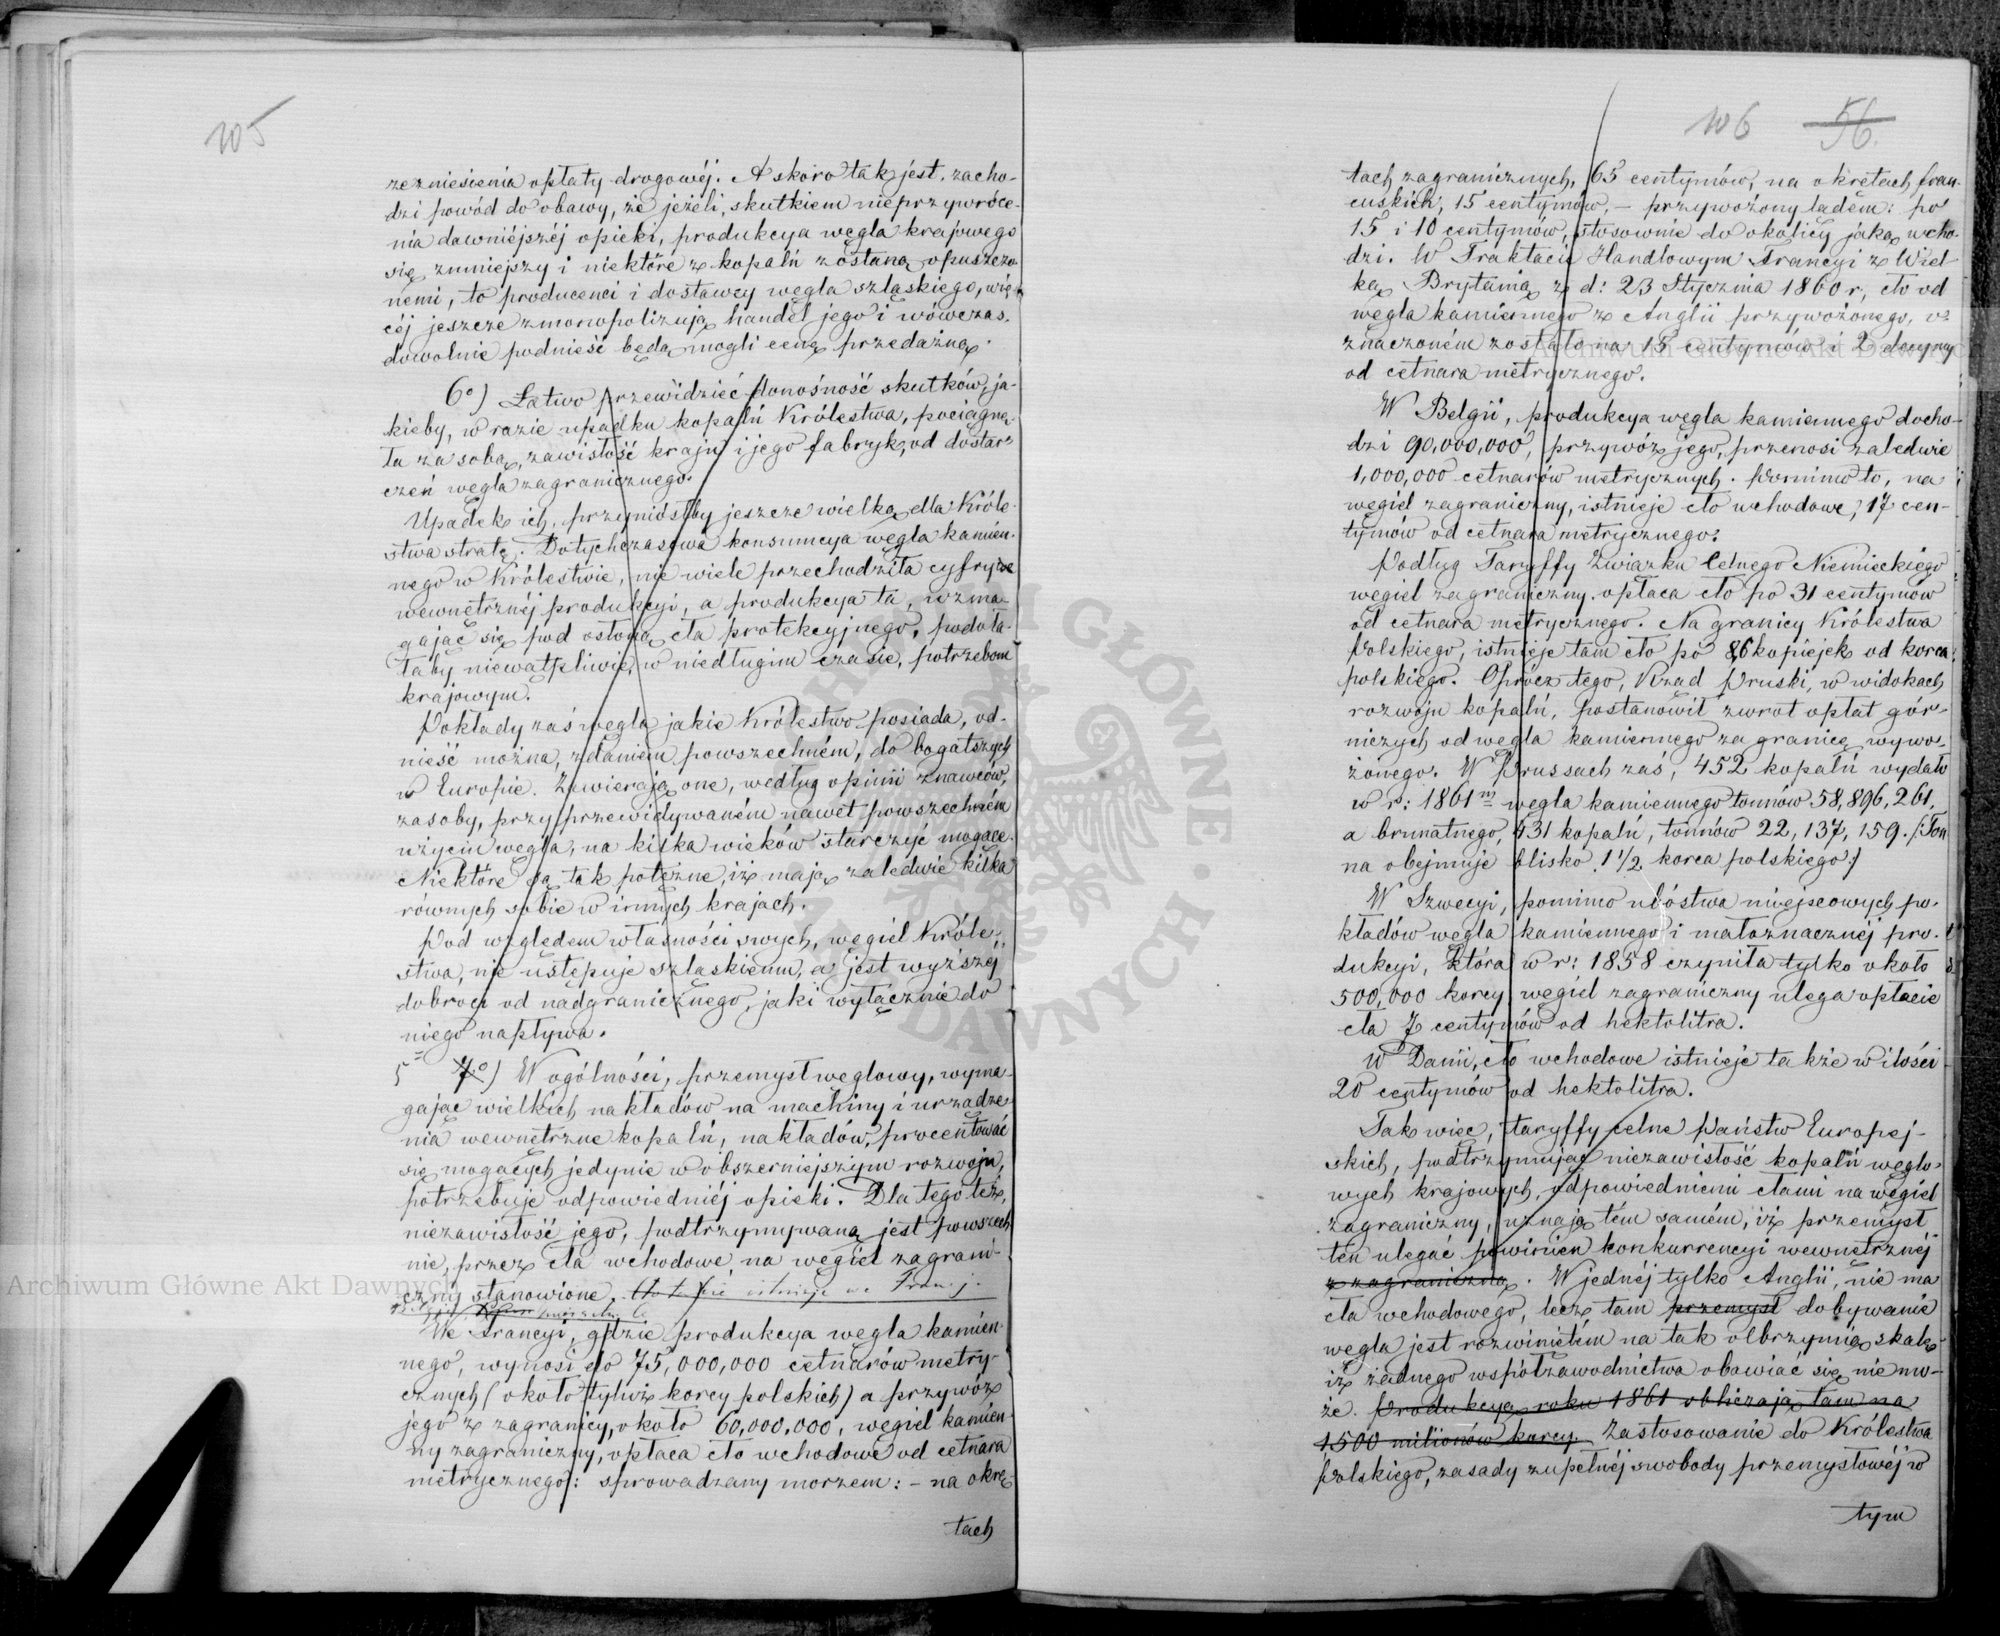 105
ze zniesienia opłaty drogowéj. A skoro tak jest, zacho-
dzi powód do obawy, że jeżeli, skutkiem nieprzywróce-
nia dawniéjszéj opieki, produkcya węgla krajowego
się zmniejszy i niektóre z kopalń zostaną opuszczo-
nemi, to producenci i dostawcy węgla szląskiego, wię-
céj jeszcze zmonopolizują handel jego i wówczas,
dowolnie podnieść będą mogli cenę przedażną.
6º) Łatwo przewidzieć donośność skutków, ja-
kieby, w razie upadku kopalń Królestwa, pociągnę-
ła za sobą, zawisłość kraju i jego fabryk, od dostar-
czeń węgla zagranicznego.
Upadek ich, przyniósłby jeszcze wielką dla Króle-
stwa stratę. Dotychczasowa konsumcya węgla kamien-
nego w Królestwie, nie wiele przechodziła cyfrę
wewnętrznéj produkcyi, a produkcya ta, wzma-
gając się pod osłoną cła protekcyjnego, podoła-
łaby niewątpliwie, w niedługim czasie, potrzebom
krajowym.
Pokłady zaś węgla jakie Królestwo posiada, od-
nieść można, zdaniem powszechném, do bogatszych
w Europie. Zawierają one, według opinii znawców,
zasoby, przy przewidywaném nawet powszechném
użyciu węgla, na kilka wieków starczyć mogące.
Niektóre są tak potężne, iż mają zaledwie kilka
równych sobie w innych krajach.
Pod względem własności swych, węgiel Króle-
stwa, nie ustępuje szląskiemu, a jest wyższéj
dobroci od nadgranicznego, jaki wyłącznie do
niego napływa.
5 7º) W ogólności, przemysł węglowy, wyma-
gając wielkich nakładów na machiny i urządze-
nia wewnętrzne kopalń, nakładów, procentować
się mogących jedynie w obszerniejszym rozwoju,
potrzebuje odpowiedniéj opieki. Dla tego też,
niezawisłość jego, podtrzymywaną jest powszech-
nie, przez cła wchodowe, na węgiel zagrani-
czny stanowione. Cło takie istnieje we Francyi
We Francyi, gdzie produkcya węgla kamien-
nego, wynosi do 75,000,000 cetnarów metry-
cznych (około tyluż korcy polskich) a przywóz
jego z zagranicy, około 60,000,000, węgiel kamien-
ny zagraniczny, opłaca cło wchodowe od cetnara
metrycznego: sprowadzany morzem: – na okrę-
tach
106 56.
tach zagranicznych, 65 centymów, na okrętach fran-
cuskich, 15 centymów, – przywożony lądem: po
15 i 10 centymów, stosownie do okolicy jaką wcho-
dzi. W Traktacie Handlowym Francyi z Wiel-
ką Brytanią z d: 23 Stycznia 1860 r, cło od
węgla kamiennego z Anglii przywożonego, o-
znaczoném zostało na 15 centymów i 2 decymy
od cetnara metrycznego.
W Belgii, produkcya węgla kamiennego docho-
dzi 90,000,000, przywóz jego, przenosi zaledwie
1,000,000 cetnarów metrycznych. Pomimo to, na
węgiel zagraniczny, istnieje cło wchodowe, 17 cen-
tymów od cetnara metrycznego.
Podług Taryffy Związku Celnego Niemieckiego
węgiel zagraniczny opłaca cło po 31 centymów
od cetnara metrycznego. Na granicy Królestwa
Polskiego, istnieje tam cło po 8,6 kopiejek od korca
polskiego. Oprócz tego, Rząd Pruski, w widokach
rozwoju kopalń, postanowił zwrot opłat gór-
niczych od węgla kamiennego za granicę wywo-
żonego. W Prussach zaś, 452 kopalń wydało
w r: 1861m węgla kamiennego tonnów 58,896,261,
a brunatnego, 431 kopalń, tonnów 22,137,159. /:Ton-
na obejmuje blisko 1 1/2 korca polskiego:/
W Szwecyi, pomimo ubóstwa miejscowych po-
kładów węgla kamiennego i małoznacznéj pro-
dukcyi, która w r: 1858 czyniła tylko około
500,000 korcy węgiel zagraniczny ulega opłacie
cła 7 centymów od hektolitra.
W Danii, cło wchodowe istnieje także w ilości
20 centymów od hektolitra.
Tak więc, taryffy celne Państw Europej-
skich, podtrzymując niezawisłość kopalń węglo-
wych krajowych, odpowiedniemi cłami na węgiel
zagraniczny, uznają tém samém, iż przemysł
ten ulegać powinien konkurrencyi wewnętrznéj
z zagraniczną. W jednéj tylko Anglii, nie ma
cła wchodowego, lecz tam przemysł dobywanie
węgla jest rozwiniętém na tak olbrzymią skalę
iż żadnego współzawodnictwa obawiać się nie mo-
że. Produkcyą roku 1861 obliczają tam na
1500 milionów korcy. Zastosowanie do Królestwa
Polskiego, zasady zupełnéj swobody przemysłowéj w
tym
Archiwum Główne Akt Dawnych
Archiwum Główne Akt Dawnych
ARCHIWUM GŁÓWNE AKT DAWNYCH